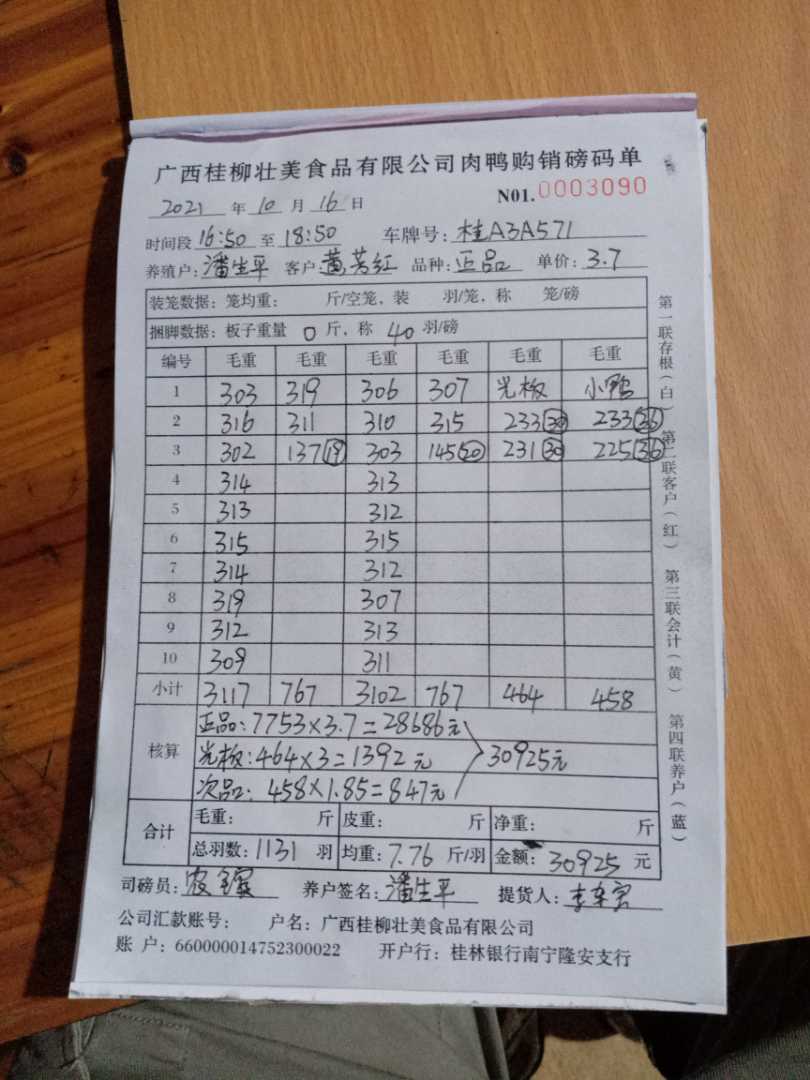 广西桂柳壮美食品有限公司肉鸭购销磅码单
2021 年 10 月 16 日 N01.0003090
时间段 16:50 至 18:50 车牌号: 桂A3A571
养殖户: 潘生平 客户: 黄芳红 品种: 正品 单价: 3.7
装笼数据: 笼均重: 斤/空笼, 装 羽/笼, 称 笼/磅
捆脚数据: 板子重量 0 斤, 称 40 羽/磅
编号 毛重 毛重 毛重 毛重 毛重 毛重
1 303 319 306 307 光板 小鸭
2 316 311 310 315 233(30) 233(36)
3 302 137(19) 303 145(20) 231(30) 225(36)
4 314 313
5 313 312
6 315 315
7 314 312
8 319 307
9 312 313
10 309 311
小计 3117 767 3102 767 464 458
核算
正品: 7753×3.7=28686元
光板: 464×3=1392元 30925元
次品: 458×1.85=847元
合计
毛重: 斤 皮重: 斤 净重: 斤
总羽数: 1131 羽 均重: 7.76 斤/羽 金额: 30925 元
司磅员: 养户签名: 潘生平 提货人:
公司汇款账号: 户名: 广西桂柳壮美食品有限公司
账 户: 660000014752300022 开户行: 桂林银行南宁隆安支行
第一联存根(白) 第二联客户(红) 第三联会计(黄) 第四联养户(蓝)